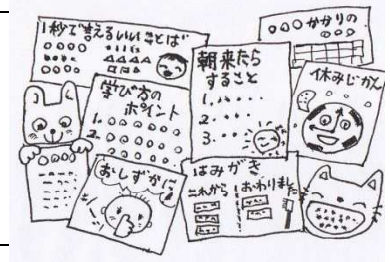 1秒で言えるいいことば
〇〇〇かかりの
朝来たら
すること
1.
2.
3.
休みじかん
学び方の
ポイント
1.
2.
おしずかに
はみがき
これから
おわりました